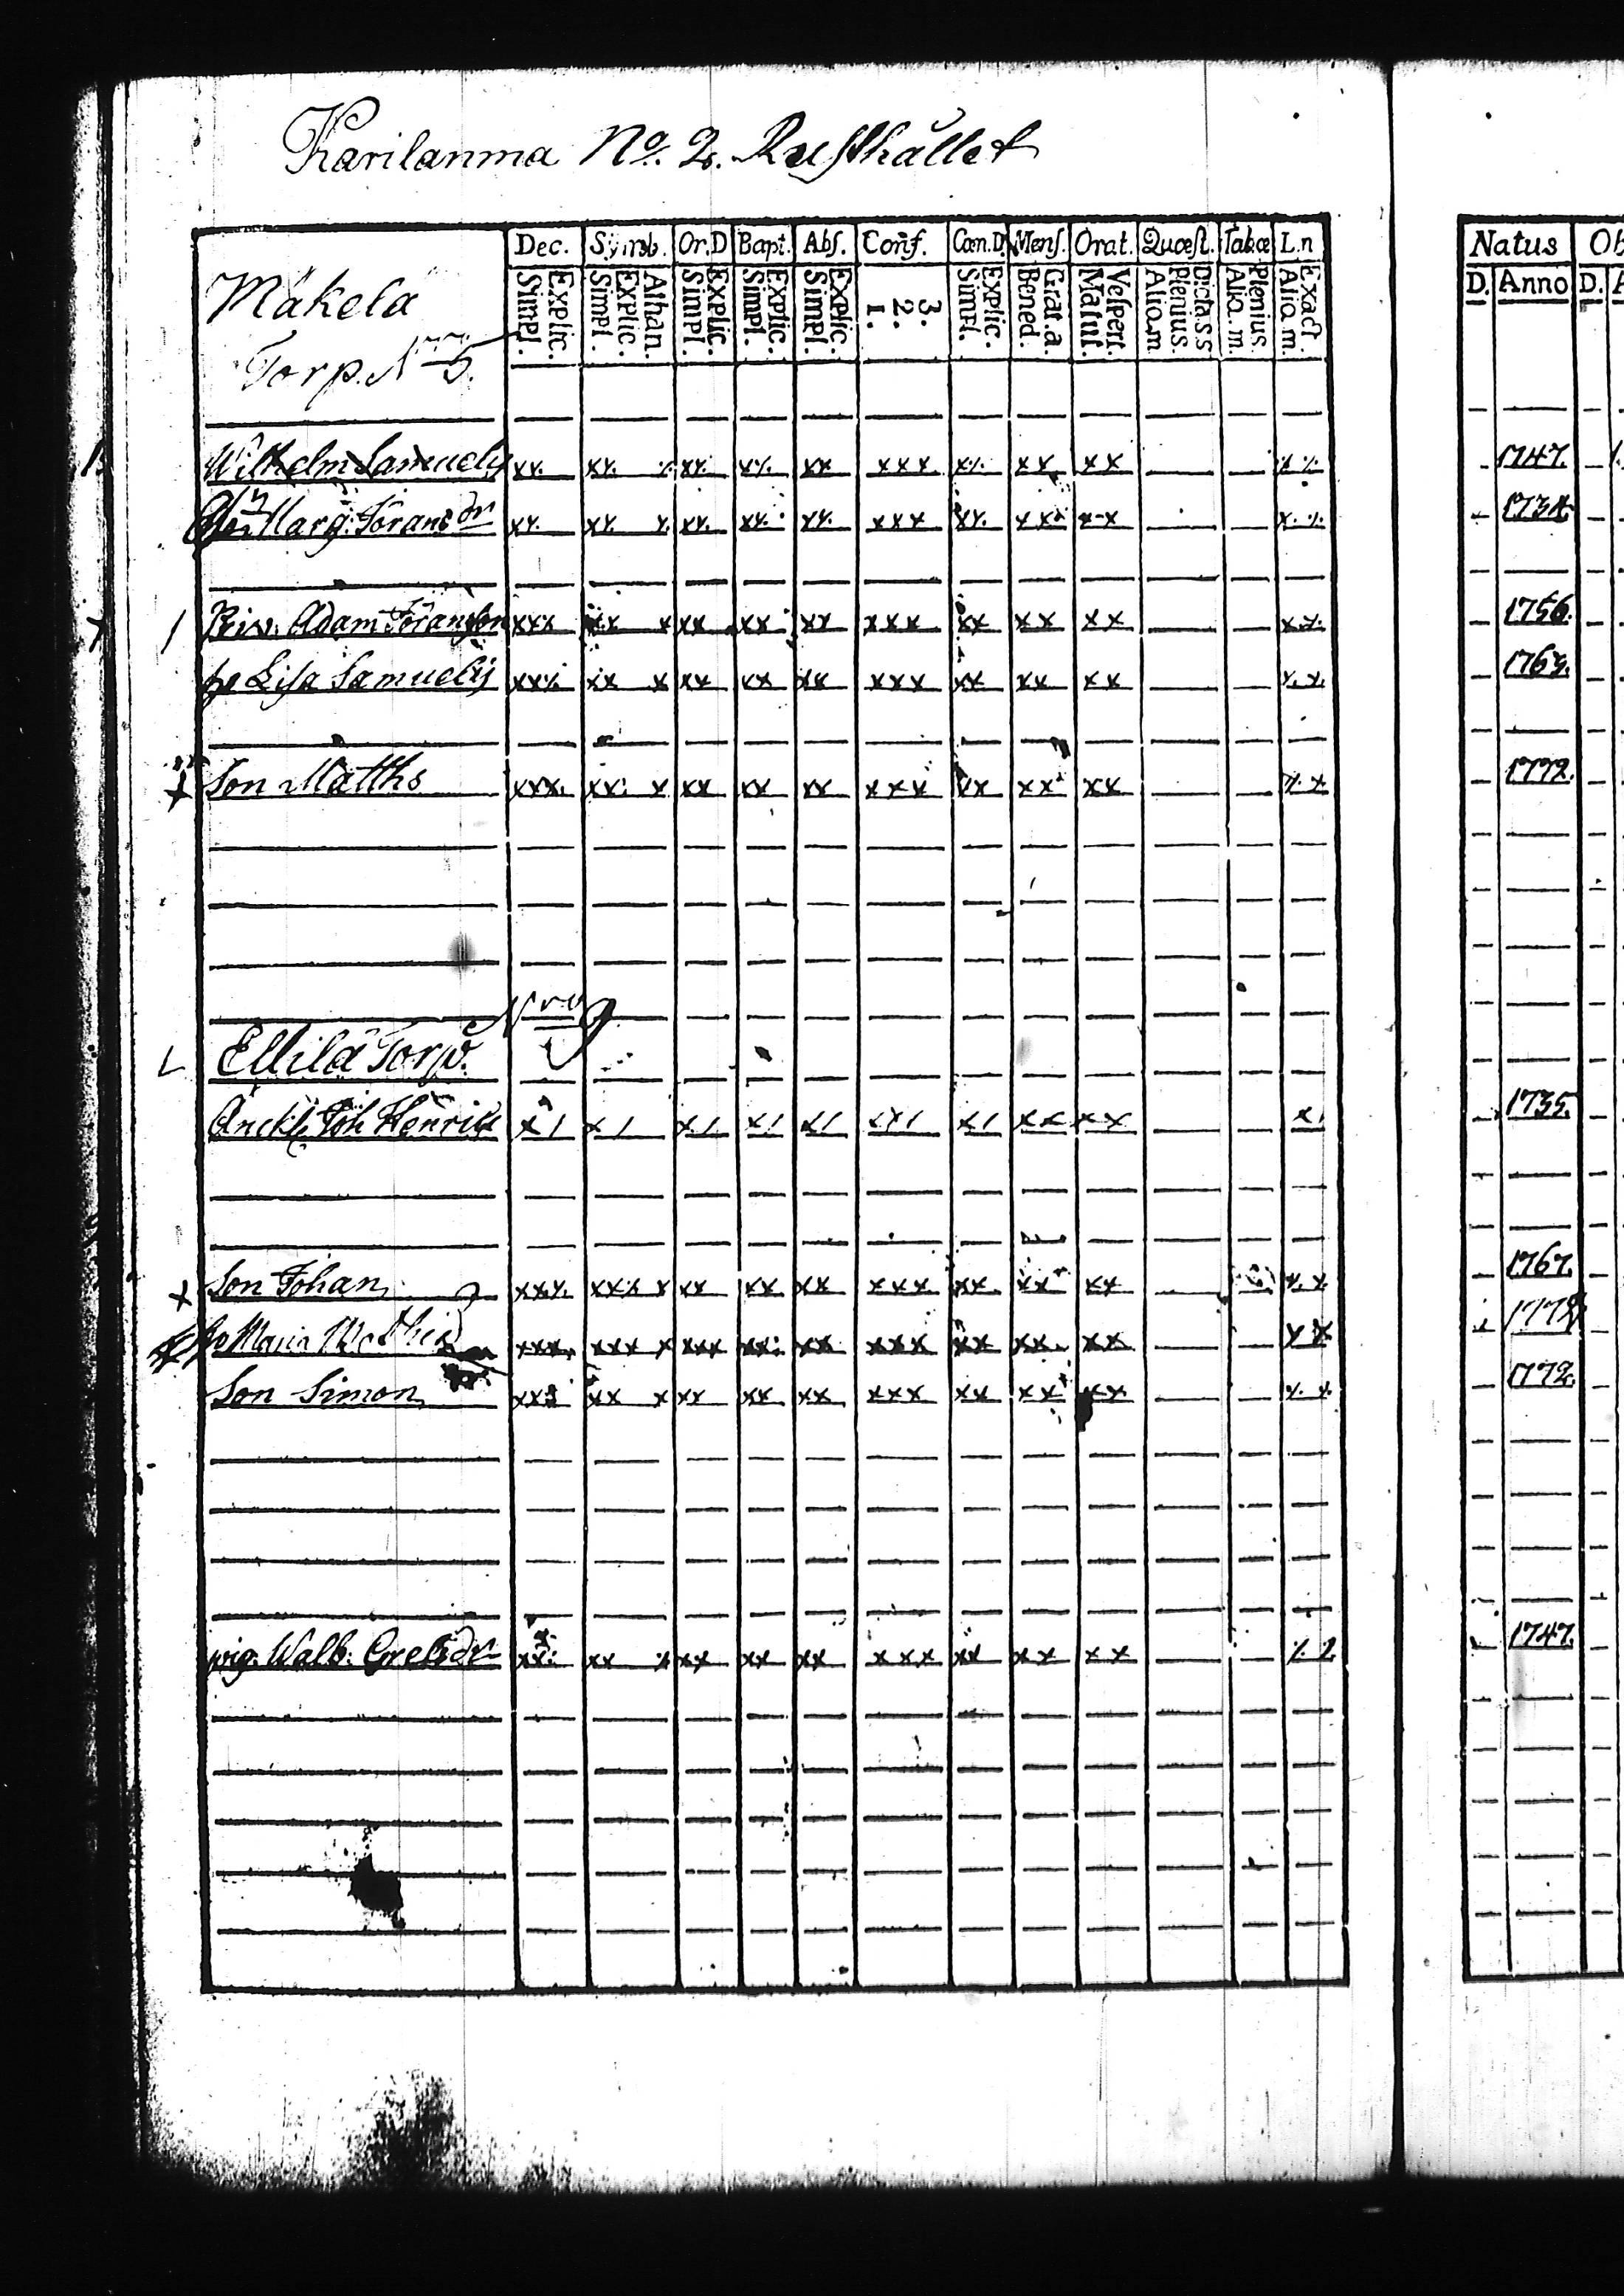 Karilanma No. 2. Rusthållet
Dec. Symb. Or.D Bapt. Abs. Conf. Cœn.D. Mens. Orat. Quæst. Tabæ L.n
Explic. Simpl. Athan. Explic. Simpl. Explic. Simpl. Explic. Simpl. Explic. Simpl. 3. 2. 1. Explic. Simpl. Grat.a. Bened. Vespert. Matut. Dicta.s.s Plenius. Aliq.m Plenius. Aliq.m. Exact. Aliq.m.
Natus
D. Anno D.
Mäkelä
Torp. N 5.
Wilhelm Samuels xx xx xx xx xx xxx xx xx xx 1747.
Marg. Jörans dr xx xx xx xx xx xxx xx xx xx
Adam Jöransson xxx xx x xx xx xx xxx xx xx xx 1756.
Lisa Samuels xxx xx x xx xx xx xxx xx xx xx
Son Matths xxx xx x xx xx xx xxx xx xx xx 1772.
Ellilä Torp. Nro 9
Enckl. Joh Henric 1735.
Son Johan xxx xxx x xx xx xx xxx xx xx xx 1767.
Maria xxx xxx x xxx xx xx xxx xx xx xx
Son Simon xxx xx x xx xx xx xxx xx xx xx 1772.
pig. Walb: xx xx x xx xx xx xxx xx xx xx 1747.